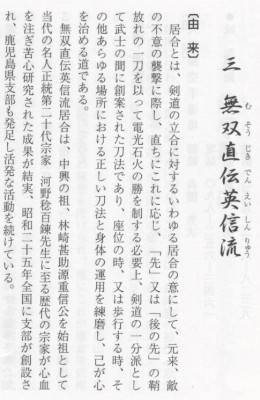 三　無双直伝英信流
むそうじきでんえいしんりゅう
〔由来〕
居合とは、剣道の立合に対するいわゆる居合の意にして、元来、敵
の不意の襲撃に際し、直ちにこれに応じ、「先」又は「後の先」の鞘
放れの一刀を以って電光石火の勝を制する必要上、剣道の一分派とし
て武士の間に創案された刀法であり、座位の時、又は歩行する時、そ
の他あらゆる場所における正しい刀法と身体の運用を練磨し、己が心
を治める道である。
無双直伝英信流居合は、中興の祖、林崎甚助源重信公を始祖として
当代の名人正統第二十代宗家　河野稔百錬先生に至る歴代の宗家が心血
を注ぎ苦心研究された成果が結実、昭和二十五年全国に支部が創設さ
れ、鹿児島県支部も発足し活発な活動を続けている。